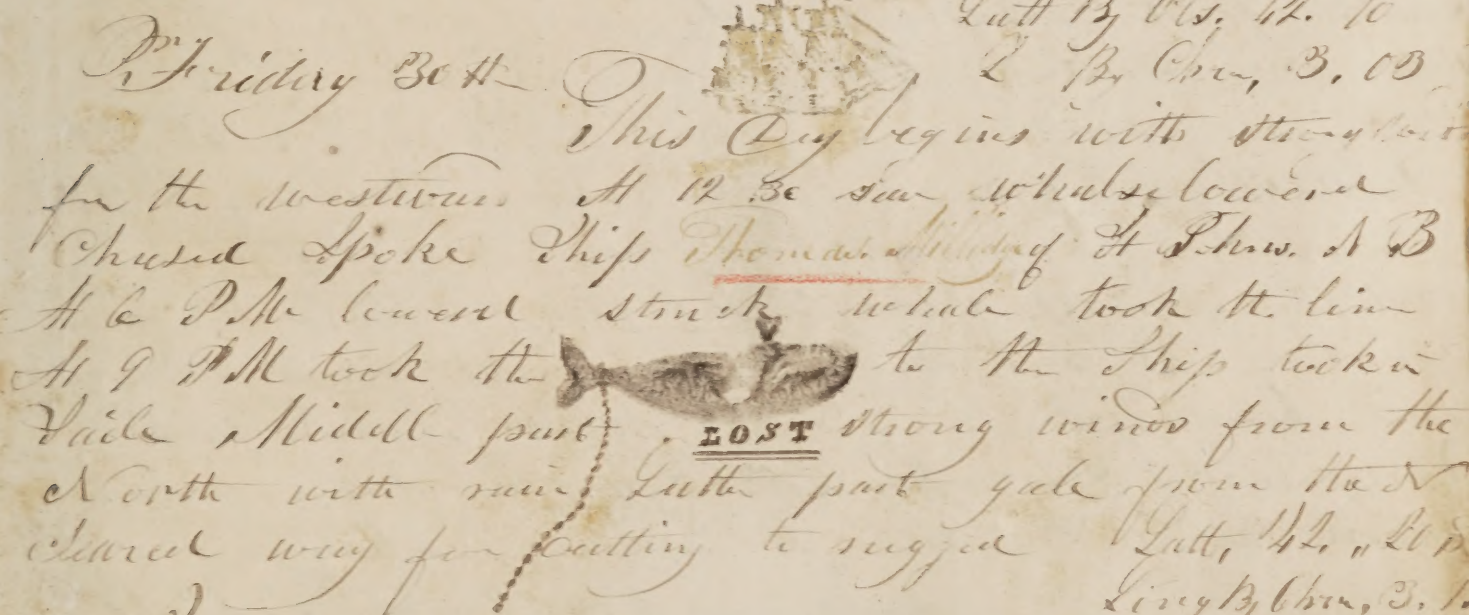 Latt By Obs. 42. 10
Friday 30th L By Chro, 3. 03
This Day begins with strong
for the westward At 12 30 saw whales lowered
Chased Spoke Ship Thomas of St Johns. N B
At 6 PM lowered struck whale took the line
At 9 PM took the to the Ship took in
Saile Midell part LOST strong winds from the
North with rain Latter part gale from the N
cleared way for cutting to rugged Latt, 42, 20
Long By Chro, 3.